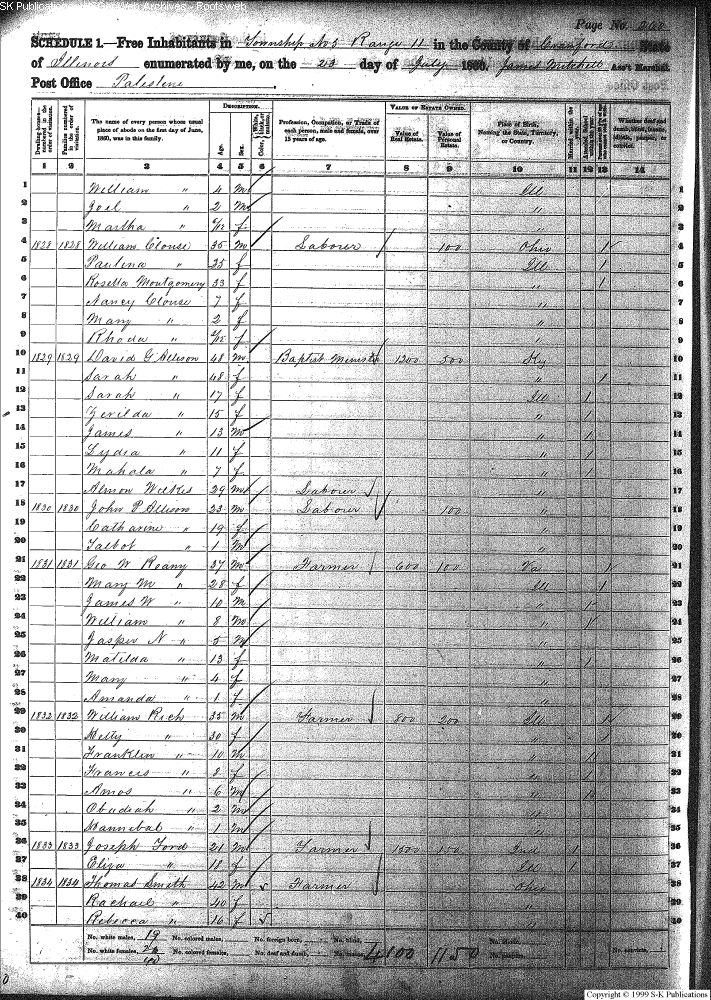 SK Publications Web Archives - Rootsweb
Page No. 260
SCHEDULE 1.—Free Inhabitants in Township No 5 Range 11 in the County of Crawford State
of Illinois enumerated by me, on the 23 day of July 1860. James Mitchell Ass't Marshal.
Post Office Palestine
Dwelling-houses numbered in the order of visitation. Families numbered in the order of visitation. The name of every person whose usual place of abode on the first day of June, 1860, was in this family. DESCRIPTION. Age. Sex. Color, White, black, or mulatto. Profession, Occupation, or Trade of each person, male and female, over 15 years of age. VALUE OF ESTATE OWNED. Value of Real Estate. Value of Personal Estate. Place of Birth, Naming the State, Territory, or Country. Married within the year. Attended School within the year. Whether deaf and dumb, blind, insane, idiotic, pauper, or convict.
1 2 3 4 5 6 7 8 9 10 11 12 13 14
1 William " 4 m Ill 1
2 Joel " 2 m " 2
3 Martha " /12 f " 3
4 1828 1828 William Clouse 35 m Laborer 100 Ohio 1 4
5 Paulina " 25 f Ill 1 5
6 Rosella Montgomery 33 f " 1 6
7 Nancy Clouse 7 f " 7
8 Mary " 2 f " 8
9 Rhoda " /12 f " 9
10 1829 1829 David G Allison 48 m Baptist Minister 1200 500 Ky 10
11 Sarah " 48 f " 1 11
12 Sarah " 17 f Ill 1 12
13 Zerilda " 15 f " 1 13
14 James " 13 m " 1 14
15 Lydia " 11 f " 1 15
16 Mahala " 7 f " 1 16
17 Almon Wilkes 29 m Laborer " 17
18 1830 1830 John P Allison 23 m Laborer 100 " 18
19 Catharine " 19 f " 19
20 Talbot " 1 m " 20
21 1831 1831 Geo W Roany 37 m Farmer 600 100 Va 1 21
22 Mary M " 28 f Ill 1 22
23 James W " 10 m " 1 23
24 William " 8 m " 1 24
25 Jasper N " 5 m " 25
26 Matilda " 13 f " 1 26
27 Mary " 4 f " 27
28 Amanda " 1 f " 28
29 1832 1832 William Rich 35 m Farmer 800 200 Ill 1 29
30 Hetty " 30 f " 1 30
31 Franklin " 10 m " 1 31
32 Francis " 8 f " 1 32
33 Amos " 6 m " 1 33
34 Obadiah " 2 m " 34
35 Hannibal " 1 m " 35
36 1833 1833 Joseph Ford 21 m Farmer 1500 150 Ind 1 36
37 Eliza " 18 f 1 37
38 1834 1834 Thomas Smith 42 m Farmer Ohio 38
39 Rachael " 40 f " 39
40 Rebecca " 16 f " 40
No. white males, 19 No. colored males, No. foreign born, No. blind,
No. white females, No. colored females, No. deaf and dumb, No. insane, 4100 1150 No. paupers, No. convicts,
40
Copyright © 1999 S-K Publications